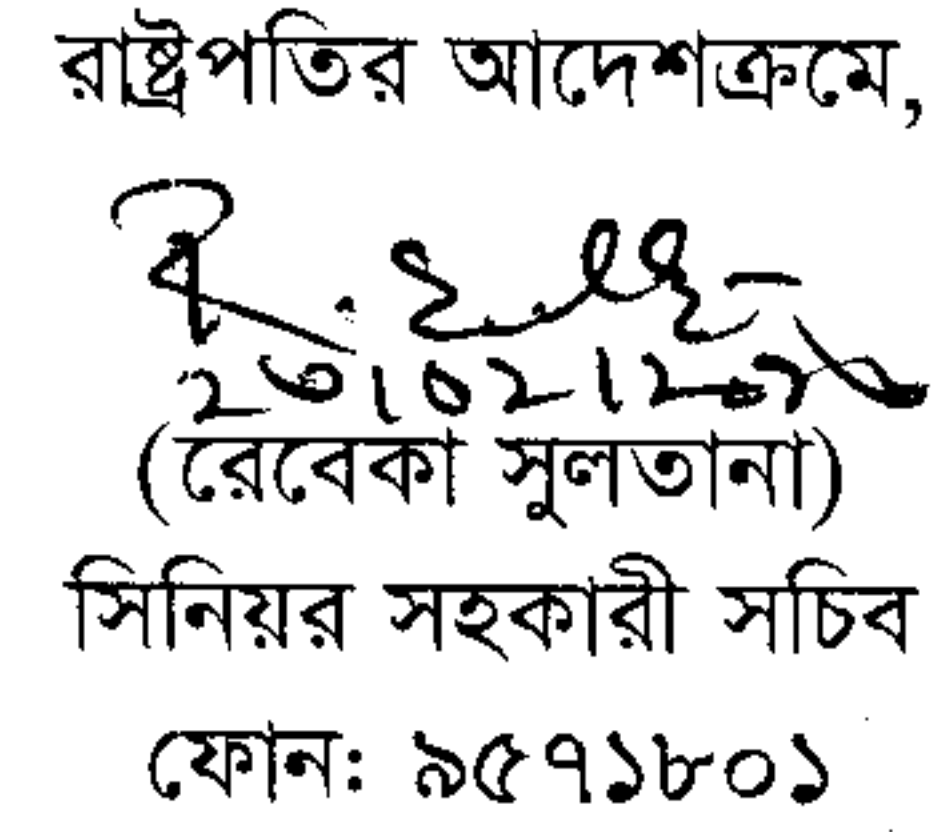 রাষ্ট্রপতির আদেশক্রমে,
(রেবেকা সুলতানা)
সিনিয়র সহকারী সচিব
ফোন: ৯৫৭১৮০১